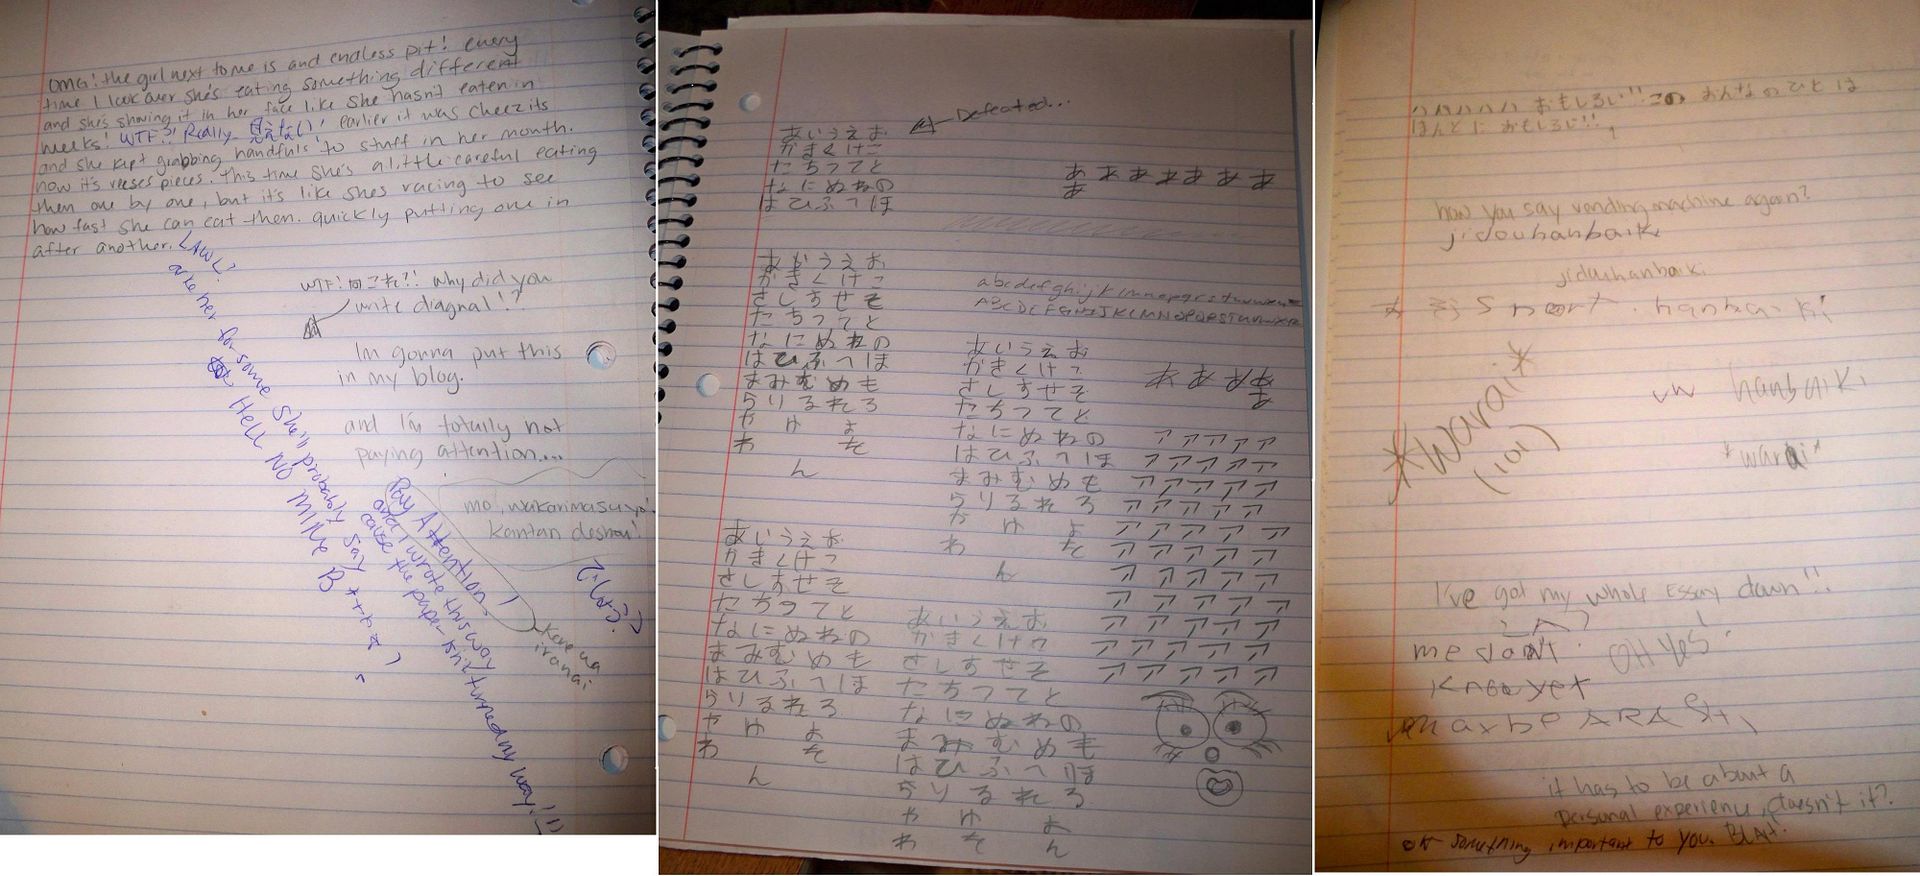 OMG! the girl next to me is and endless pit! every
time I look over she's eating something different
and she's shoving it in her face like she hasn't eaten in
weeks! WTF?! Really earlier it was cheezits
and she kept grabbing handfuls to stuff in her mouth.
now it's reeses pieces. This time she's a little careful eating
them one by one, but it's like shes racing to see
how fast she can eat them. quickly putting one in
after another.
LAWL!
aske her for some She'll probably say
HELL NO MINE B****
WTF! 何これ?! why did you
write diagnal!?
Im gonna put this
in my blog.
and I'm totally not
paying attention....
mo, wakarimasu yo!
kantan deshou!
Pay Attention!
and I wrote this way
cause the paper kinz turned my way!!
Kane wa
iranai
Defeated...
あいうえお
かきくけこ
たちつてと
なにぬねの
はひふへほ
あ あ あ あ あ あ あ
あ
あいうえお
かきくけこ
さしすせそ
たちつてと
なにぬねの
はひふへほ
まみむめも
らりるれろ
や ゆ よ
わ を
ん
abcdefghijklmnopqrstuvwxyz
ABCDEFGHIJKLMNOPQRSTUVWXYZ
あいうえお
かきくけこ
さしすせそ
たちつてと
なにぬねの
はひふへほ
まみむめも
らりるれろ
や ゆ よ
わ を
ん
あ あ あ あ
あ
ア ア ア ア ア
ア ア ア ア ア
ア ア ア ア ア
ア ア ア ア ア
ア ア ア ア ア
ア ア ア ア ア
ア ア ア ア ア
ア ア ア ア ア
ア ア ア ア ア
ア ア ア ア ア
ア ア ア ア ア
あいうえお
かきくけこ
さしすせそ
たちつてと
なにぬねの
まみむめも
はひふへほ
らりるれろ
や ゆ よ
わ を
ん
あいうえお
かきくけこ
さしすせそ
たちつてと
なにぬねの
まみむめも
はひふへほ
らりるれろ
や ゆ よ
わ を ん
ハハハハハ おもしろい!! この おんなのひとは
ほんとに おもしろい!!
how you say vending machine again?
jidouhanbaiki
jidouhanbaiki
hanbaiki
hanbaiki
*warai*
(lol)
*warai*
I've got my whole essay down!!
me don't
know yet
OH Yes!
it has to be about a
personal experience, doesn't it?
OK something important to you. BLAH.